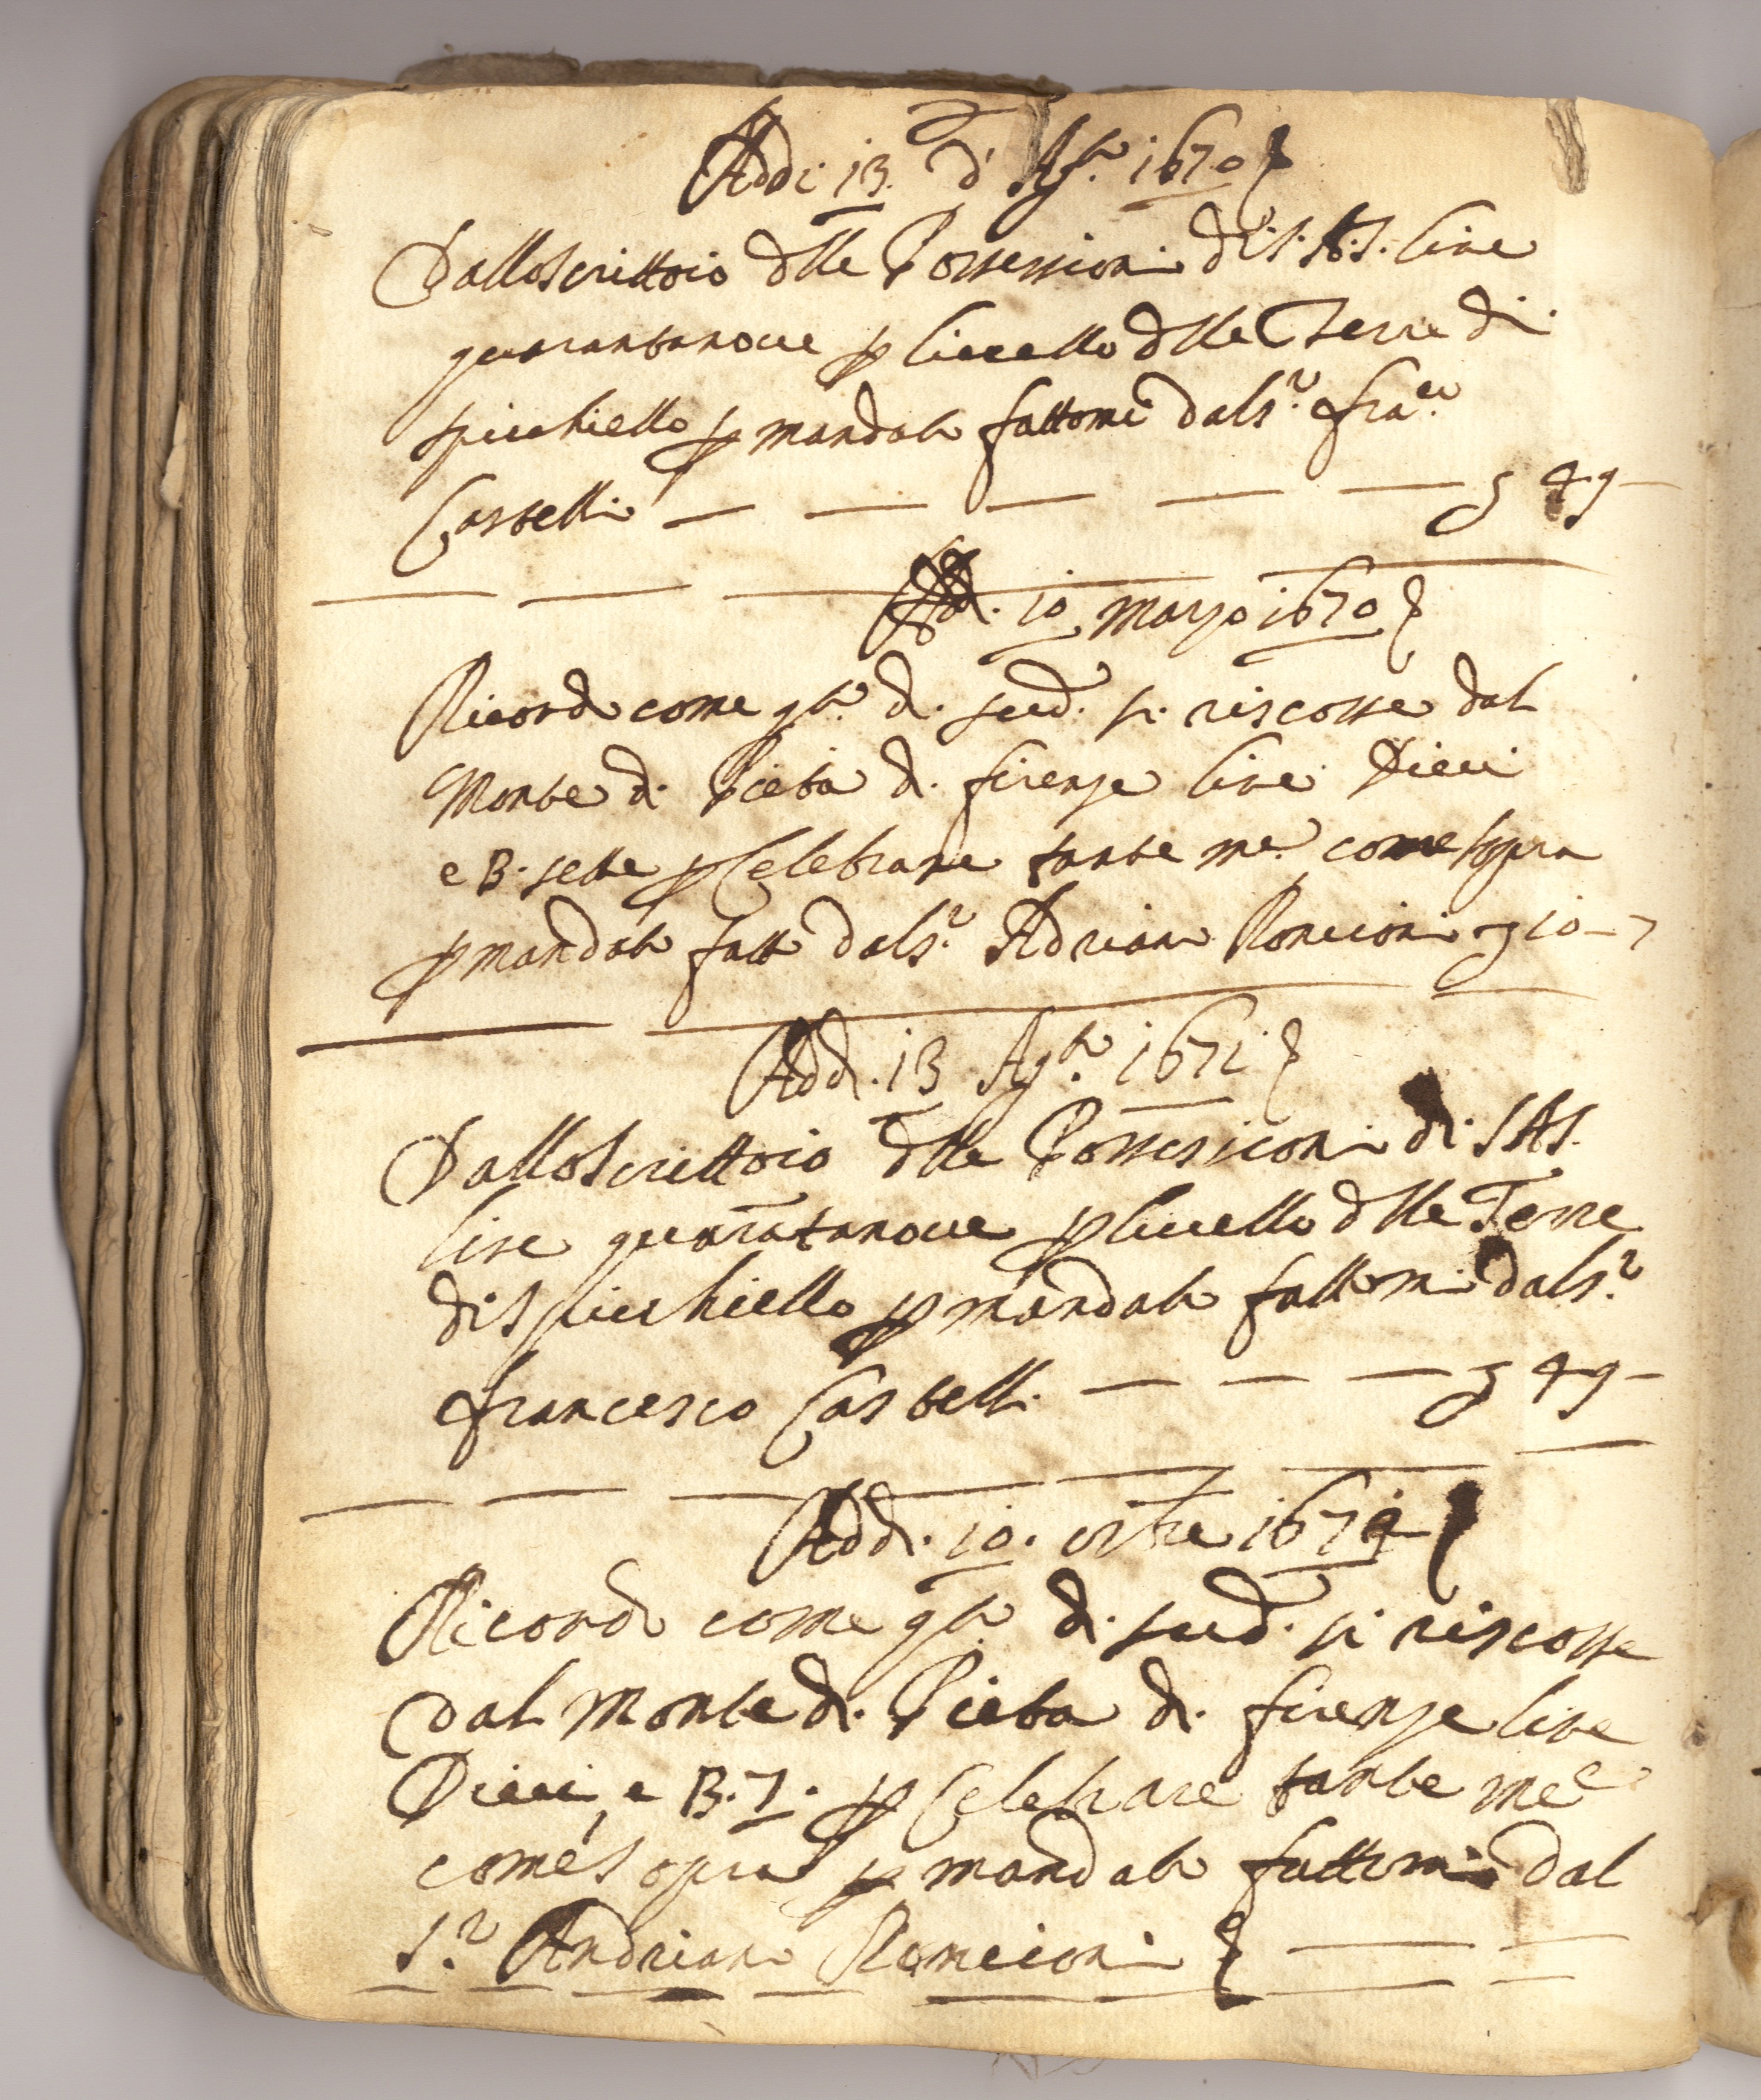 Addi 13. d' Ag.to 1670
Dallo scrittoio dlle Possessioni di S.A.S. lire
quarantanoue p liuello dlle Terre di
spicchiello p mandato fattomi dal s.r fra.co
Castelli — — — — — 49 —
Addi. 10 marzo 1670
Ricordo come q.to di. sud.o si riscosse dal
Monte di Pieta di firenze lire Dieci
e B. sette p Celebrare tante me. come sopra
p mandato fatto dal s.r Adriano Roncioni 10 — 7
Addi. 13 Ag.to 1671
Dallo scrittoio dlle Possessioni di SAS.
lire quarātanoue p liuello dlle Terre
di spicchiello p mandato fattomi dal s.r
francesco Castelli — — — 49 —
Addi. 10. 167
Ricordo come q.to di. sud.o si riscosse
dal Monte di Pieta di firenze lire
Dieci e B. 7. p Celebrare tante me
come sopra p mandato fattomi dal
S.r Andriano Roncioni